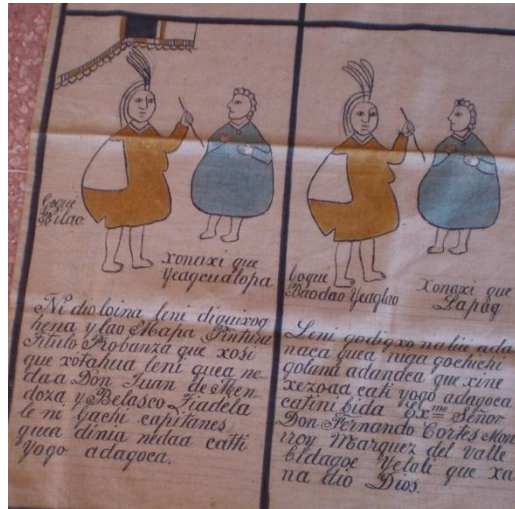 Coque
Bilao.
xonaxi que
Yeagcualopa
Ni dio loina leni diquixog
hena y lao Moapa Pintura
Titulo Probanza que xosi
que xotahua leni quea ne
daa Don Juan de Men
doza y Belasco Liadela
le ni yachi capitanes
quea dinia nedaa catti
yogo adagoca.
coqui
Baodao Yeaglao
Xonaxi que
Lapag
Leni godigxo naliu ada
naca quea niga gochichi
golana adanaca que xine
xezoaa cati yogo adagoca
catini bida Exmo Señor
Don Fernando Cortes Mon
rroy Marquez del valle
bidagoe Yetali que xa
na dio Dios.